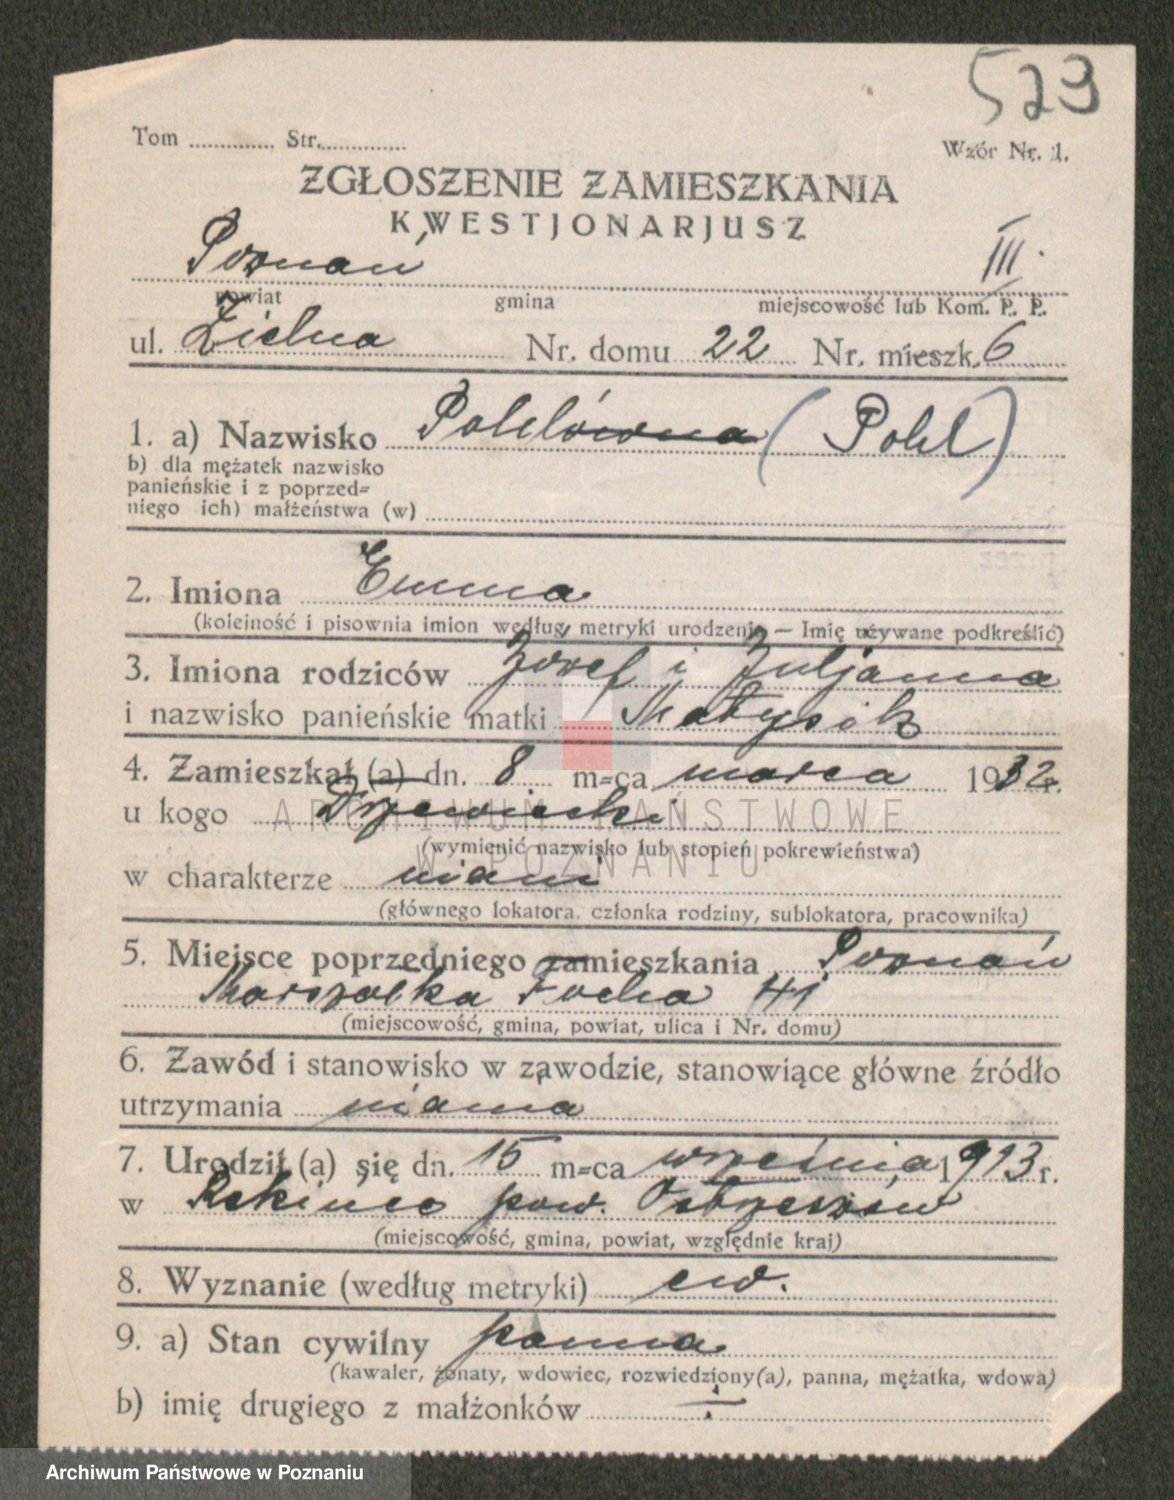 523
Tom ............ Str. ............
Wzór Nr. 1.
ZGŁOSZENIE ZAMIESZKANIA
KWESTJONARJUSZ
Poznań III.
powiat gmina miejscowość lub Kom. P. P.
ul. Zielna Nr. domu 22 Nr. mieszk. 6
1. a) Nazwisko Pohlówna (Pohl)
b) dla mężatek nazwisko
panieńskie i z poprzed=
niego ich) małżeństwa (w)
2. Imiona Emma
(kolejność i pisownia imion według metryki urodzenia — Imię używane podkreślić)
3. Imiona rodziców Józef i Juljanna
i nazwisko panieńskie matki Matysik
4. Zamieszkał (a) dn. 8 m=ca marca 1932 r.
u kogo Drzewiecki
(wymienić nazwisko lub stopień pokrewieństwa)
w charakterze niani
(głównego lokatora, członka rodziny, sublokatora, pracownika)
5. Miejsce poprzedniego zamieszkania Poznań
Marszałka Focha 41
(miejscowość, gmina, powiat, ulica i Nr. domu)
6. Zawód i stanowisko w zawodzie, stanowiące główne źródło
utrzymania niania
7. Urodził (a) się dn. 15 m=ca września 1913 r.
w pow. Ostrzeszów
(miejscowość, gmina, powiat, względnie kraj)
8. Wyznanie (według metryki) ew.
9. a) Stan cywilny panna
(kawaler, żonaty, wdowiec, rozwiedziony(a), panna, mężatka, wdowa)
b) imię drugiego z małżonków ÷
ARCHIWUM PAŃSTWOWE
W POZNANIU
Archiwum Państwowe w Poznaniu